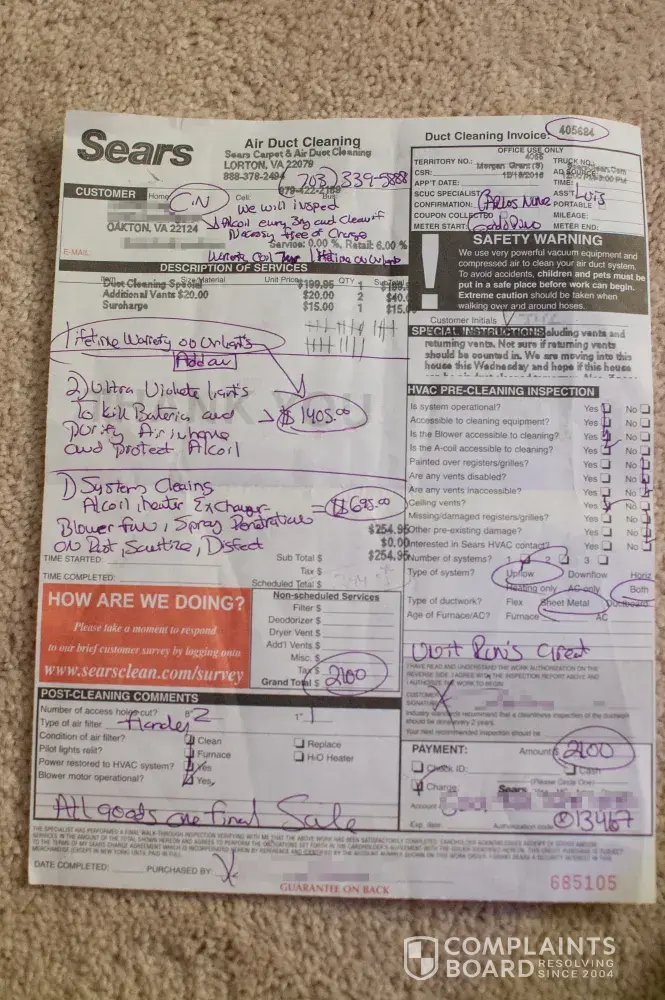 Sears
Air Duct Cleaning
Sears Carpet & Air Duct Cleaning
LORTON, VA 22079
888-378-2494
703) 339-5888
Duct Cleaning Invoice: 405684
OFFICE USE ONLY
TERRITORY NO.: 4056
TRUCK NO.:
CSR: Morgan Grant (S)
AD SOURCE:
APP'T DATE: 12/15/2016
TIME:
SCUC SPECIALIST:
ASS'T Luis
CONFIRMATION:
PORTABLE
COUPON COLLECTED
MILEAGE:
METER START
METER END:
CUSTOMER
Home:
Cell:
Bus:
OAKTON, VA 22124
E-MAIL:
We will inspect
Acoil every 3yr and Clean if
free of Charge
Service: 0.00 %, Retail: 6.00 %
SAFETY WARNING
We use very powerful vacuum equipment and
compressed air to clean your air duct system.
To avoid accidents, children and pets must be
put in a safe place before work can begin.
Extreme caution should be taken when
walking over and around hoses.
Customer Initials
DESCRIPTION OF SERVICES
Item
Size/Material
Unit Price
QTY
Duct Cleaning Special $199.95 1
Additional Vents $20.00 $20.00 2 $40.
Surcharge $15.00 1 $15.
SPECIAL INSTRUCTIONS
cluding vents and
returning vents. Not sure if returning vents
should be counted in. We are moving into this
house this Wednesday and hope if this house
Lifetime Warrety on Uv lights
Add on
2) Ultra Violete lights
To Kill Bateria and
purify Air in home
and Protect Acoil
$ 1405.00
1) System Cleaing
Acoil, heater Exchanger
Blower fan, Spray Penatration
on Rust, Sanitize, Disfect
= $695.00
HVAC PRE-CLEANING INSPECTION
Is system operational? Yes No
Accessible to cleaning equipment? Yes No
Is the Blower accessible to cleaning? Yes No
Is the A-coil accessible to cleaning? Yes No
Painted over registers/grilles? Yes No
Are any vents disabled? Yes No
Are any vents inaccessible? Yes No
Ceiling vents? Yes No
Missing/damaged registers/grilles? Yes No
Other pre-existing damage? Yes No
Interested in Sears HVAC contact? Yes No
Number of systems? 1 2 3
Type of system? Upflow Downflow Horiz
Heating only AC only Both
Type of ductwork? Flex Sheet Metal Ductboard
Age of Furnace/AC? Furnace AC
$254.95
$0.00
Sub Total $ $254.95
Tax $
Scheduled Total $
TIME STARTED:
TIME COMPLETED:
HOW ARE WE DOING?
Please take a moment to respond
to our brief customer survey by logging onto
www.searsclean.com/survey
Non-scheduled Services
Filter $
Deodorizer $
Dryer Vent $
Add'l Vents $
Misc. $
Tax $
Grand Total $ 2100
Unit Run's Great
I HAVE READ AND UNDERSTAND THE WORK AUTHORIZATION ON THE
REVERSE SIDE. I AGREE WITH THE INSPECTION REPORT ABOVE AND
I AUTHORIZE THE WORK TO BEGIN.
CUSTOMER
SIGNATURE
Industry standards recommend that a cleanliness inspection of the ductwork
should be done every 2 years.
Your next recommended inspection should be
POST-CLEANING COMMENTS
Number of access holes cut? 8" 2 1"
Type of air filter
Condition of air filter? Clean Replace
Pilot lights relit? Furnace H-O Heater
Power restored to HVAC system? Yes
Blower motor operational? Yes
PAYMENT: Amount $ 2100
Check ID:
Cash
(Please Circle One)
Charge: Sears
Account
Exp. date:
Authorization code
13467
All goods are final Sale
THE SPECIALIST HAS PERFORMED A FINAL WALK-THROUGH INSPECTION VERIFYING WITH ME THAT THE ABOVE WORK HAS BEEN SATISFACTORILY COMPLETED.
DATE COMPLETED:
PURCHASED BY
GUARANTEE ON BACK
685105
COMPLAINTS
BOARD
RESOLVING
SINCE 2004